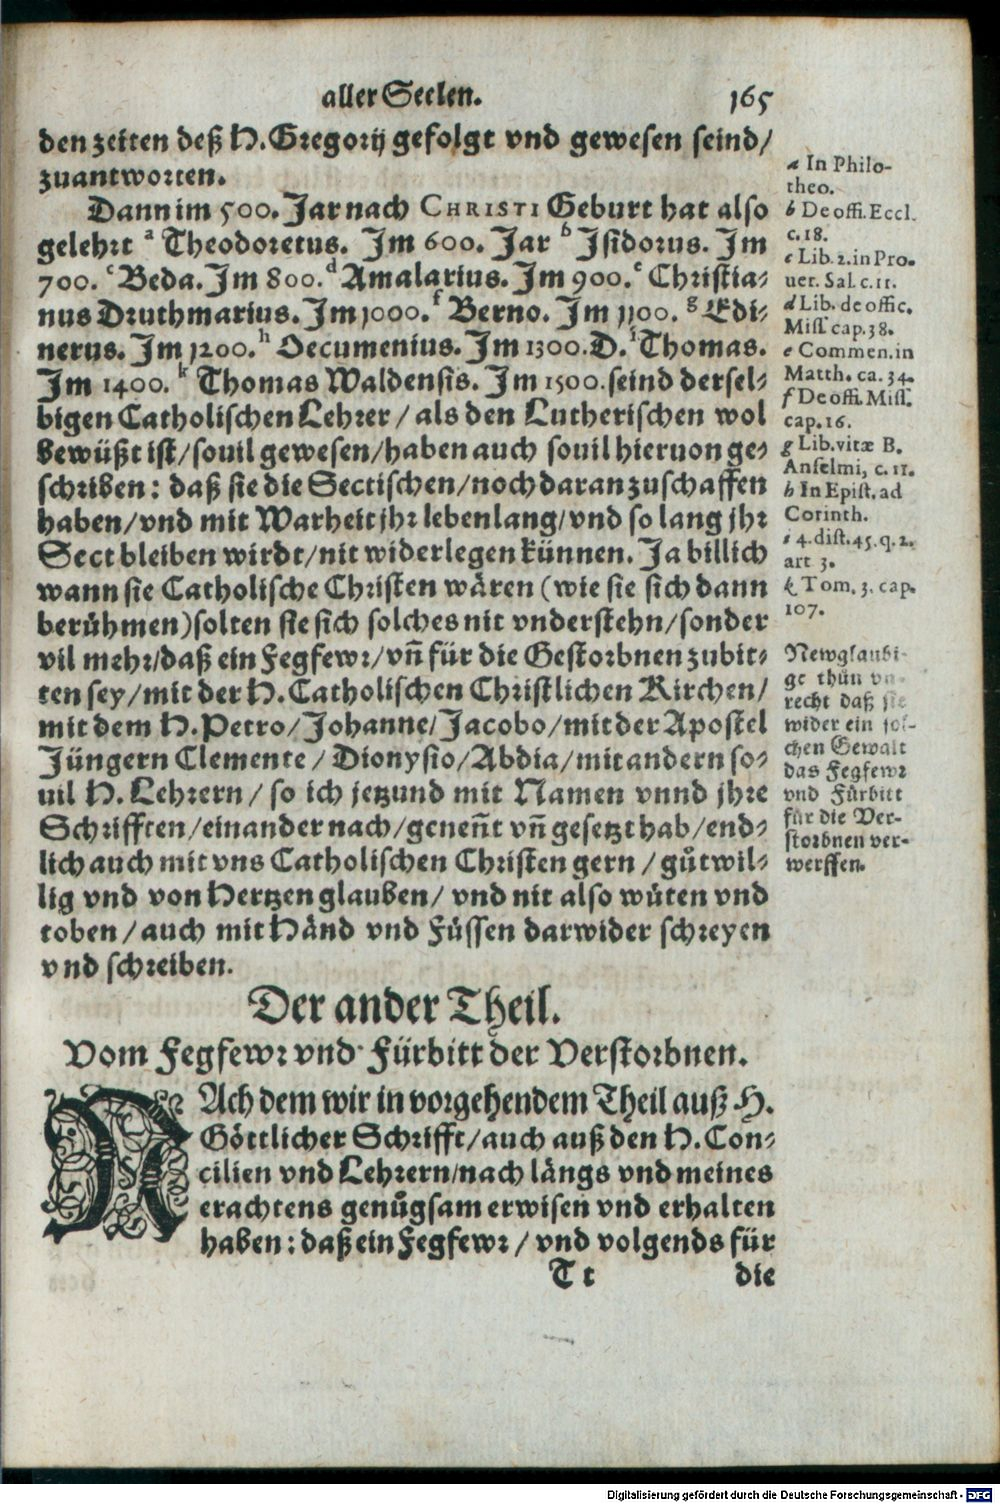 aller Seelen. 165
den zeiten deß H. Gregorij gefolgt vnd gewesen seind/
zuantworten.
Dann im 500. Jar nach CHRISTI Geburt hat also
gelehrt a Theodoretus. Im 600. Jar b Isidorus. Im
700. c Beda. Im 800. d Amalarius. Im 900. e Christia-
nus Druthmarius. Im 1000. f Berno. Im 1100. g Edi-
nerus. Im 1200. h Oecumenius. Im 1300. D. i Thomas.
Im 1400. k Thomas Waldensis. Im 1500. seind dersel-
bigen Catholischen Lehrer / als den Lutherischen wol
bewüßt ist/souil gewesen/haben auch souil hieruon ge-
schriben: daß sie die Sectischen/noch daran zuschaffen
haben/vnd mit Warheit jhr lebenlang/vnd so lang jhr
Sect bleiben wirdt/nit widerlegen künnen. Ja billich
wann sie Catholische Christen wären (wie sie sich dann
berühmen) solten sie sich solches nit vnderstehn/sonder
vil mehr/daß ein Fegfewr/vñ für die Gestorbnen zubit-
ten sey/mit der H. Catholischen Christlichen Kirchen/
mit dem H. Petro/Johanne/Jacobo/mit der Apostel
Jüngern Clemente / Dionysio/Abdia/mit andern so-
uil H. Lehrern / so ich jetzund mit Namen vnnd jhre
Schrifften/einander nach/genent̃ vñ gesetzt hab/end-
lich auch mit vns Catholischen Christen gern / gůtwil-
lig vnd von Hertzen glauben/ vnd nit also wüten vnd
toben / auch mit Händ vnd Füssen darwider schreyen
vnd schreiben.
a In Philo-
theo.
b De offi. Eccl.
c. 18.
c Lib. 2. in Pro.
uer. Sal c. 11.
d Lib. de offic.
Miss cap. 38.
e Commen. in
Matth. ca. 34.
f De offi. Miss.
cap. 16.
g Lib. vitæ B.
Anselmi, c. 11.
h In Epist. ad
Corinth.
i 4. dist. 45. q. 2.
art 3.
k Tom. 3. cap.
107.
Newglaubi-
ge thün vn-
recht daß sie
wider ein sol-
chen Gewalt
das Fegfewr
vnd Fürbitt
für die Ver-
storbnen ver-
werffen.
Der ander Theil.
Vom Fegfewr vnd Fürbitt der Verstorbnen.
NAch dem wir in vorgehendem Theil auß H.
Göttlicher Schrifft/auch auß den H. Con-
cilien vnd Lehrern/nach längs vnd meines
erachtens genůgsam erwisen vnd erhalten
haben: daß ein Fegfewr / vnd volgends für
Tt die
Digitalisierung gefördert durch die Deutsche Forschungsgemeinschaft - DFG